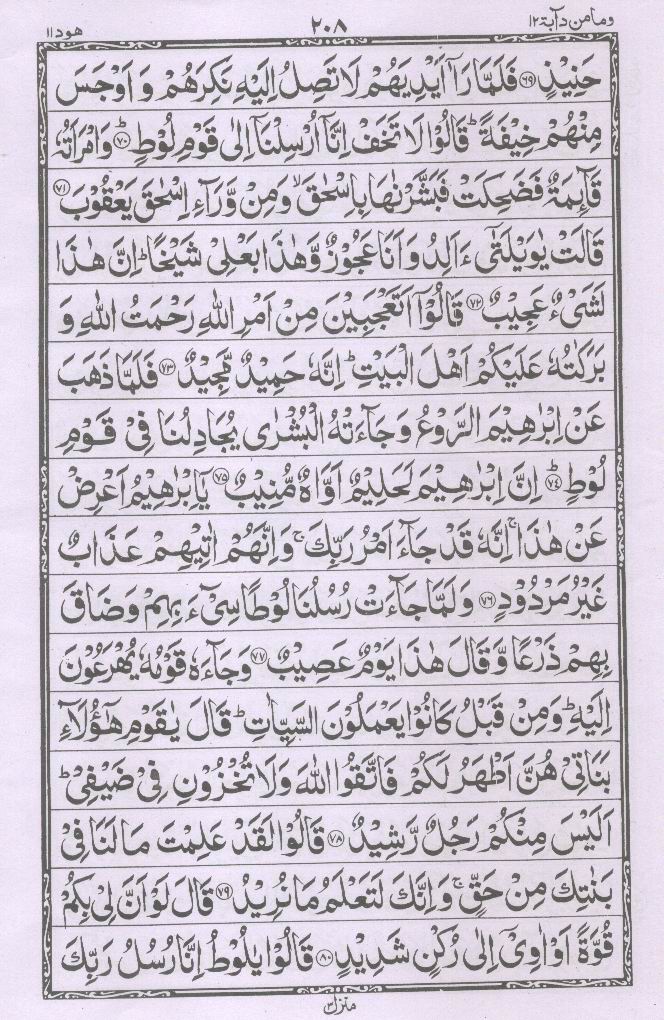 وما من دآبة ١٢
٢٠٨
هود ١١
حَنِيْذٍ ﴿٦٩﴾ فَلَمَّا رَاٰۤ اَيْدِيَهُمْ لَا تَصِلُ اِلَيْهِ نَكِرَهُمْ وَ اَوْجَسَ
مِنْهُمْ خِيْفَةً ؕ قَالُوْا لَا تَخَفْ اِنَّاۤ اُرْسِلْنَاۤ اِلٰى قَوْمِ لُوْطٍ ؕ﴿٧٠﴾ وَامْرَاَتُهٗ
قَآئِمَةٌ فَضَحِكَتْ فَبَشَّرْنٰهَا بِاِسْحٰقَ ۙ وَمِنْ وَّرَآءِ اِسْحٰقَ يَعْقُوْبَ ﴿٧١﴾
قَالَتْ يٰوَيْلَتٰٓى ءَاَلِدُ وَ اَنَا عَجُوْزٌ وَّهٰذَا بَعْلِىْ شَيْخًا ؕ اِنَّ هٰذَا
لَشَىْءٌ عَجِيْبٌ ﴿٧٢﴾ قَالُوْۤا اَتَعْجَبِيْنَ مِنْ اَمْرِ اللّٰهِ رَحْمَتُ اللّٰهِ وَ
بَرَكٰتُهٗ عَلَيْكُمْ اَهْلَ الْبَيْتِ ؕ اِنَّهٗ حَمِيْدٌ مَّجِيْدٌ ﴿٧٣﴾ فَلَمَّا ذَهَبَ
عَنْ اِبْرٰهِيْمَ الرَّوْعُ وَ جَآءَتْهُ الْبُشْرٰى يُجَادِلُنَا فِىْ قَوْمِ
لُوْطٍ ؕ﴿٧٤﴾ اِنَّ اِبْرٰهِيْمَ لَحَلِيْمٌ اَوَّاهٌ مُّنِيْبٌ ﴿٧٥﴾ يٰۤاِبْرٰهِيْمُ اَعْرِضْ
عَنْ هٰذَا ۚ اِنَّهٗ قَدْ جَآءَ اَمْرُ رَبِّكَ ۚ وَاِنَّهُمْ اٰتِيْهِمْ عَذَابٌ
غَيْرُ مَرْدُوْدٍ ﴿٧٦﴾ وَلَمَّا جَآءَتْ رُسُلُنَا لُوْطًا سِىْٓءَ بِهِمْ وَضَاقَ
بِهِمْ ذَرْعًا وَّقَالَ هٰذَا يَوْمٌ عَصِيْبٌ ﴿٧٧﴾ وَجَآءَهٗ قَوْمُهٗ يُهْرَعُوْنَ
اِلَيْهِ ؕ وَمِنْ قَبْلُ كَانُوْا يَعْمَلُوْنَ السَّيِّاٰتِ ؕ قَالَ يٰقَوْمِ هٰٓؤُلَآءِ
بَنَاتِىْ هُنَّ اَطْهَرُ لَكُمْ فَاتَّقُوا اللّٰهَ وَلَا تُخْزُوْنِ فِىْ ضَيْفِىْ ؕ
اَلَيْسَ مِنْكُمْ رَجُلٌ رَّشِيْدٌ ﴿٧٨﴾ قَالُوْا لَقَدْ عَلِمْتَ مَا لَنَا فِىْ
بَنٰتِكَ مِنْ حَقٍّ ۚ وَاِنَّكَ لَتَعْلَمُ مَا نُرِيْدُ ﴿٧٩﴾ قَالَ لَوْ اَنَّ لِىْ بِكُمْ
قُوَّةً اَوْ اٰوِىْۤ اِلٰى رُكْنٍ شَدِيْدٍ ﴿٨٠﴾ قَالُوْا يٰلُوْطُ اِنَّا رُسُلُ رَبِّكَ
منزل ٣